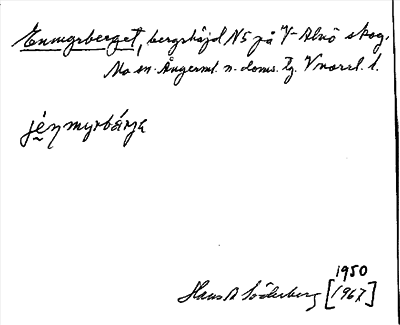 Enmyrberget, bergshöjd N5 på V-Alnö skog,
No sn. Ångerml. n. doms. tg. Vnorrl. l.
jénmyrbárja
1950
Hans A Söderberg [1967]